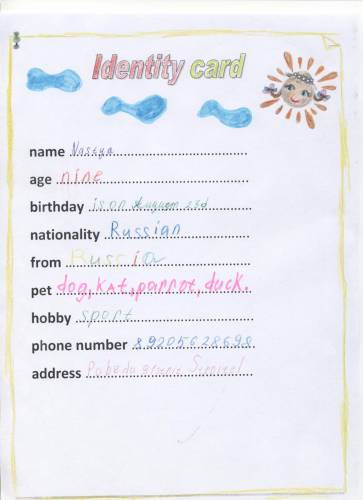 Identity card
name Nastya
age nine
birthday is on August 23d
nationality Russian
from Russia
pet dog, kat, parrot, duck.
hobby sport
phone number 89205628698
address